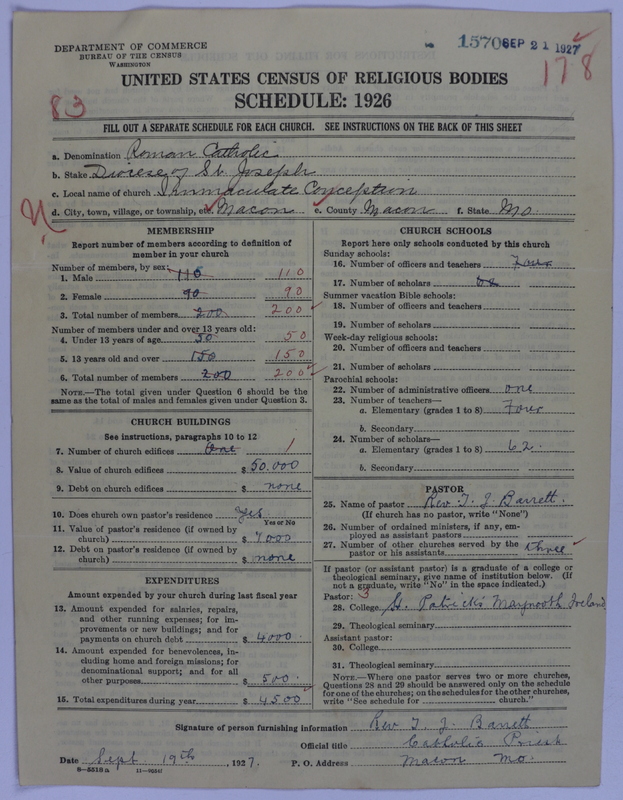 DEPARTMENT OF COMMERCE
BUREAU OF THE CENSUS
WASHINGTON
15706 SEP 21 1927
178
UNITED STATES CENSUS OF RELIGIOUS BODIES
SCHEDULE: 1926
83
FILL OUT A SEPARATE SCHEDULE FOR EACH CHURCH. SEE INSTRUCTIONS ON THE BACK OF THIS SHEET
a. Denomination Roman Catholic
b. Stake Diocese of St. Joseph
c. Local name of church Immaculate Conception
d. City, town, village, or township, etc. Macon e. County Macon f. State Mo.
MEMBERSHIP
Report number of members according to definition of
member in your church
Number of members, by sex:
1. Male 110 110
2. Female 90 90
3. Total number of members 200 200
Number of members under and over 13 years old:
4. Under 13 years of age 50 50
5. 13 years old and over 150 150
6. Total number of members 200 200
NOTE.—The total given under Question 6 should be the
same as the total of males and females given under Question 3.
CHURCH BUILDINGS
See instructions, paragraphs 10 to 12
7. Number of church edifices One 1
8. Value of church edifices $ 50.000
9. Debt on church edifices $ none
10. Does church own pastor's residence Yes
Yes or No
11. Value of pastor's residence (if owned by
church) $ 7000
12. Debt on pastor's residence (if owned by
church) $ none
EXPENDITURES
Amount expended by your church during last fiscal year
13. Amount expended for salaries, repairs,
and other running expenses; for im-
provements or new buildings; and for
payments on church debt $ 4000.
14. Amount expended for benevolences, in-
cluding home and foreign missions; for
denominational support; and for all
other purposes $ 500.
15. Total expenditures during year $ 4500
CHURCH SCHOOLS
Report here only schools conducted by this church
Sunday schools:
16. Number of officers and teachers Four
17. Number of scholars
Summer vacation Bible schools:
18. Number of officers and teachers
19. Number of scholars
Week-day religious schools:
20. Number of officers and teachers
21. Number of scholars
Parochial schools:
22. Number of administrative officers one
23. Number of teachers—
a. Elementary (grades 1 to 8) Four
b. Secondary
24. Number of scholars—
a. Elementary (grades 1 to 8) 62.
b. Secondary
PASTOR
25. Name of pastor Rev T. J. Barrett.
(If church has no pastor, write "None")
26. Number of ordained ministers, if any, em-
ployed as assistant pastors
27. Number of other churches served by the
pastor or his assistants three
If pastor (or assistant pastor) is a graduate of a college or
theological seminary, give name of institution below. (If
not a graduate, write "No" in the space indicated.)
Pastor: 3
28. College St. Patricks Maynooth Ireland
29. Theological seminary
Assistant pastor:
30. College
31. Theological seminary
NOTE.—Where one pastor serves two or more churches,
Questions 28 and 29 should be answered only on the schedule
for one of the churches; on the schedules for the other churches,
write "See schedule for ........ church."
Signature of person furnishing information Rev T. J. Barrett
Official title Catholic Priest
Date Sept. 19th, 1927. P. O. Address Macon Mo.
8—5518a 11—9034